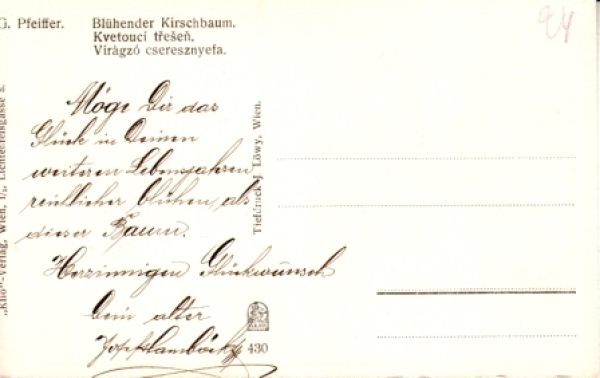 G. Pfeiffer.
Blühender Kirschbaum.
Kvetoucí třešeň.
Virágzó cseresznyefa.
94
Möge Dir das
Glück in Deinen
weiteren Lebensjahren
reichlicher blühen, als
dieser Baum.
Herzinnigen Glückwunsch
Dein alter
430
"Kilo"-Verlag, Wien, I/1, Lichtenfelsgasse 5.
Tiefdruck J. Löwy, Wien.